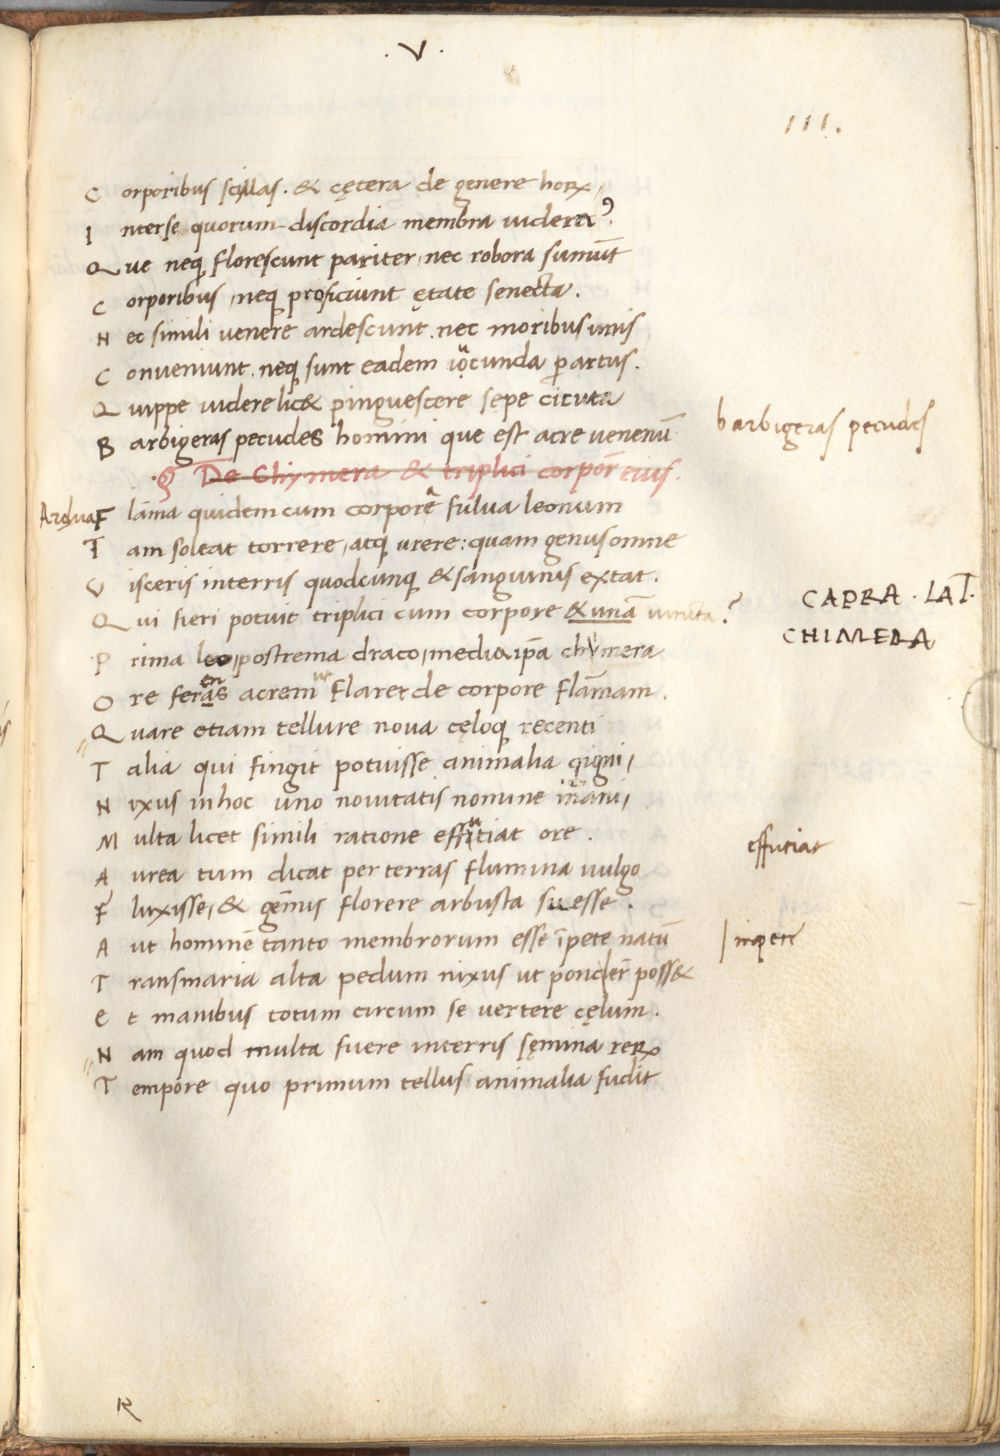 .V.
111.
C orporibus scyllas. & cętera de genere horꝝ,
I nterse quorum discordia membra uidem᷒?
Q ue neq; florescunt pariter, nec robora sumūt
C orporibus, neq; proficiunt ętate senecta.
N ec simili venere ardescunt. nec moribus unis
C onveniunt. neq; sunt eadem iocunda p artus.
Q uippe uidere lic& pinguescere sępe cicuta
B arbigeras pecudes homini que est acre uenenū
barbigeras pecudes
§ De Chymera & triplici corpore eius.
Ardua
F lāma quidem cum corpore fulua leonum
T am soleat torrere, atq; urere: quam genus omne
V isceris interris quodcunq; & sanguinis extat.
CAPRA. LAT.
Q ui fieri potuit triplici cum corpore & unā uincta?
CHIMERA
P rima leo, postrema draco, media ip̄a chymera
O re feras acrem flaret de corpore flāmam.
Q uare etiam tellure nova cęloq; recenti
T alia qui fingit potuisse animalia gigni,
N ixus inhoc uno novitatis nomine inani,
M ulta licet simili ratione effutiat ore.
effutiat
A urea tum dicat per terras flumina uulgo
F luxisse, & gēmis florere arbusta suesse.
A ut hominē tanto membrorum esse īpete natū
impete
T ransmaria alta pedum nixus ut ponderē poss&
E t manibus totum circum se vertere cęlum.
N am quod multa fuere interris sęmina rerꝝ
T empore quo primum tellus animalia fudit
R